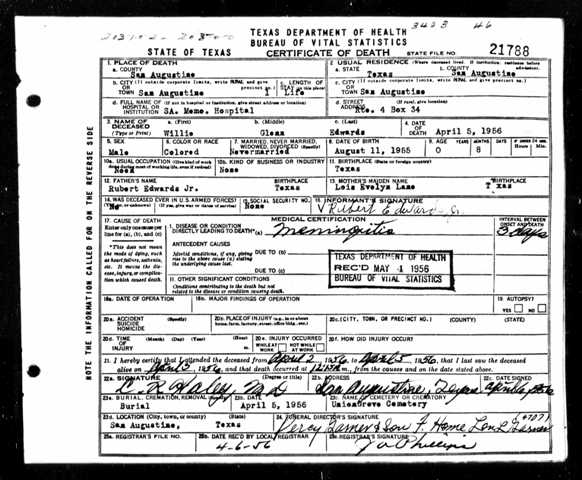 3423 46
TEXAS DEPARTMENT OF HEALTH
BUREAU OF VITAL STATISTICS
STATE OF TEXAS
CERTIFICATE OF DEATH
STATE FILE NO. 21788
1. PLACE OF DEATH
a. COUNTY
San Augustine
2. USUAL RESIDENCE (Where deceased lived. If institution: residence before admission).
a. STATE
Texas
b. COUNTY
San Augustine
b. CITY (If outside corporate limits, write RURAL and give precinct no.)
OR
TOWN San Augustine 1
c. LENGTH OF STAY (in this place)
Life
c. CITY (If outside corporate limits, write RURAL and give precinct no.)
OR
TOWN San Augustine
d. FULL NAME OF (If not in hospital or institution, give street address or location)
HOSPITAL OR
INSTITUTION SA. Memo. Hospital
d. STREET (If rural, give location)
ADDRESS Rte. 4 Box 34
3. NAME OF DECEASED (Type or Print)
a. (First)
Willie
b. (Middle)
Glenn
c. (Last)
Edwards
4. DATE OF DEATH
April 5, 1956
5. SEX
Male
6. COLOR OR RACE
Colored
7. MARRIED, NEVER MARRIED, WIDOWED, DIVORCED (Specify)
Nevermarried
8. DATE OF BIRTH
August 11, 1955
9. AGE YEARS MONTHS DAYS
0 8
IF UNDER 24 HRS.
Hours Min.
10a. USUAL OCCUPATION (Give kind of work done during most of working life, even if retired)
10b. KIND OF BUSINESS OR INDUSTRY
None
11. BIRTHPLACE (State or foreign country)
Texas
12. FATHER'S NAME
Rubert Edwards Jr.
BIRTHPLACE
Texas
13. MOTHER'S MAIDEN NAME
Lois Evelyn Lane
BIRTHPLACE
T xas
14. WAS DECEASED EVER IN U.S. ARMED FORCES?
(Yes, no, or unknown) (If yes, give war or dates of service)
No
15. SOCIAL SECURITY NO.
None
16. INFORMANT'S SIGNATURE
Rubert Edwards Jr.
17. CAUSE OF DEATH
Enter only one cause per line for (a), (b), and (c)
MEDICAL CERTIFICATION
INTERVAL BETWEEN ONSET AND DEATH
1. DISEASE OR CONDITION
DIRECTLY LEADING TO DEATH* (a)
Meningitis
3 days
*This does not mean the mode of dying, such as heart failure, asthenia, etc. It means the disease, injury, or complication which caused death.
ANTECEDENT CAUSES
Morbid conditions, if any, giving rise to the above cause (a) stating the underlying cause last.
DUE TO (b)
DUE TO (c)
TEXAS DEPARTMENT OF HEALTH
REC'D MAY 4 1956
BUREAU OF VITAL STATISTICS
11. OTHER SIGNIFICANT CONDITIONS
Conditions contributing to the death but not related to the disease or condition causing death.
18a. DATE OF OPERATION
18b. MAJOR FINDINGS OF OPERATION
19. AUTOPSY?
YES NO
20a. ACCIDENT SUICIDE HOMICIDE
(Specify)
20b. PLACE OF INJURY (e.g., in or about home, farm, factory, street, office bldg., etc.)
20c. (CITY, TOWN, OR PRECINCT NO.)
(COUNTY)
(STATE)
20d. TIME OF INJURY
(Month) (Day) (Year) (Hour)
20e. INJURY OCCURRED
WHILE AT WORK NOT WHILE AT WORK
20f. HOW DID INJURY OCCUR?
21. I hereby certify that I attended the deceased from April 2 1956, to April 5 1956, that I last saw the deceased
alive on April 5, 1956, and that death occurred at m., from the causes and on the date stated above.
22a. SIGNATURE
Haley, M.D.
(Degree or title)
22b. ADDRESS
San Augustine, Texas
22c. DATE SIGNED
23a. BURIAL, CREMATION, REMOVAL (Specify)
Burial
23b. DATE
April 5, 1956
23c. NAME OF CEMETERY OR CREMATORY
Uniongrove Cemetery
23d. LOCATION (City, town, or county) (State)
San Augustine, Texas
24. FUNERAL DIRECTOR'S SIGNATURE
Percy Garner & Son F. Home
25a. REGISTRAR'S FILE NO.
25b. DATE REC'D BY LOCAL REGISTRAR
4-6-56
25c. REGISTRAR'S SIGNATURE
NOTE THE INFORMATION CALLED FOR ON THE REVERSE SIDE